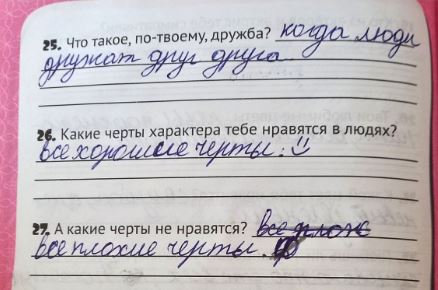 25. Что такое, по-твоему, дружба? когда люди
дружат друг друга
26. Какие черты характера тебе нравятся в людях?
все хорошие черты :)
27. А какие черты не нравятся? все плохие
все плохие черты.